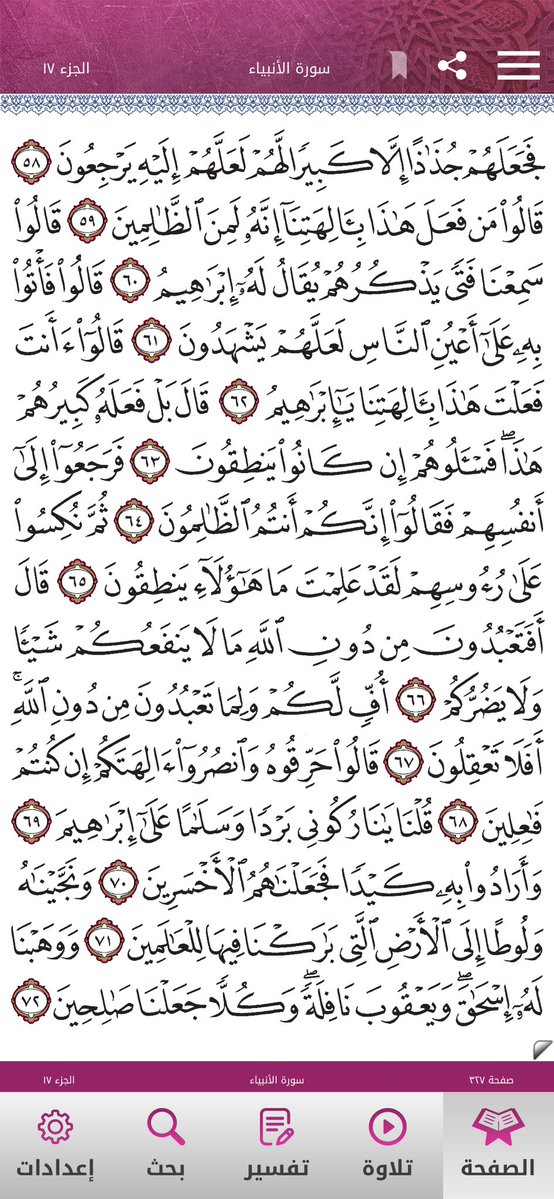 الجزء ١٧
سورة الأنبياء
فَجَعَلَهُمْ جُذَٰذًا إِلَّا كَبِيرًا لَّهُمْ لَعَلَّهُمْ إِلَيْهِ يَرْجِعُونَ ٥٨
قَالُوا۟ مَن فَعَلَ هَٰذَا بِـَٔالِهَتِنَآ إِنَّهُۥ لَمِنَ ٱلظَّٰلِمِينَ ٥٩ قَالُوا۟
سَمِعْنَا فَتًى يَذْكُرُهُمْ يُقَالُ لَهُۥٓ إِبْرَٰهِيمُ ٦٠ قَالُوا۟ فَأْتُوا۟
بِهِۦ عَلَىٰٓ أَعْيُنِ ٱلنَّاسِ لَعَلَّهُمْ يَشْهَدُونَ ٦١ قَالُوٓا۟ ءَأَنتَ
فَعَلْتَ هَٰذَا بِـَٔالِهَتِنَا يَٰٓإِبْرَٰهِيمُ ٦٢ قَالَ بَلْ فَعَلَهُۥ كَبِيرُهُمْ
هَٰذَا فَسْـَٔلُوهُمْ إِن كَانُوا۟ يَنطِقُونَ ٦٣ فَرَجَعُوٓا۟ إِلَىٰٓ
أَنفُسِهِمْ فَقَالُوٓا۟ إِنَّكُمْ أَنتُمُ ٱلظَّٰلِمُونَ ٦٤ ثُمَّ نُكِسُوا۟
عَلَىٰ رُءُوسِهِمْ لَقَدْ عَلِمْتَ مَا هَٰٓؤُلَآءِ يَنطِقُونَ ٦٥ قَالَ
أَفَتَعْبُدُونَ مِن دُونِ ٱللَّهِ مَا لَا يَنفَعُكُمْ شَيْـًٔا
وَلَا يَضُرُّكُمْ ٦٦ أُفٍّ لَّكُمْ وَلِمَا تَعْبُدُونَ مِن دُونِ ٱللَّهِ ۚ
أَفَلَا تَعْقِلُونَ ٦٧ قَالُوا۟ حَرِّقُوهُ وَٱنصُرُوٓا۟ ءَالِهَتَكُمْ إِن كُنتُمْ
فَٰعِلِينَ ٦٨ قُلْنَا يَٰنَارُ كُونِى بَرْدًا وَسَلَٰمًا عَلَىٰٓ إِبْرَٰهِيمَ ٦٩
وَأَرَادُوا۟ بِهِۦ كَيْدًا فَجَعَلْنَٰهُمُ ٱلْأَخْسَرِينَ ٧٠ وَنَجَّيْنَٰهُ
وَلُوطًا إِلَى ٱلْأَرْضِ ٱلَّتِى بَٰرَكْنَا فِيهَا لِلْعَٰلَمِينَ ٧١ وَوَهَبْنَا
لَهُۥٓ إِسْحَٰقَ ۖ وَيَعْقُوبَ نَافِلَةً ۖ وَكُلًّا جَعَلْنَا صَٰلِحِينَ ٧٢
صفحة ٣٢٧
سورة الأنبياء
الجزء ١٧
الصفحة
تلاوة
تفسير
بحث
إعدادات